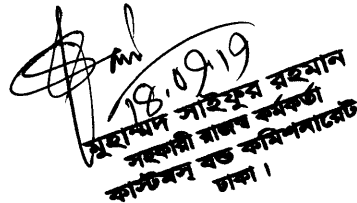 18.09.19
মুহাম্মদ সাইফুর রহমান
সহকারী রাজস্ব কর্মকর্তা
কাস্টমস্ বন্ড কমিশনারেট
ঢাকা।